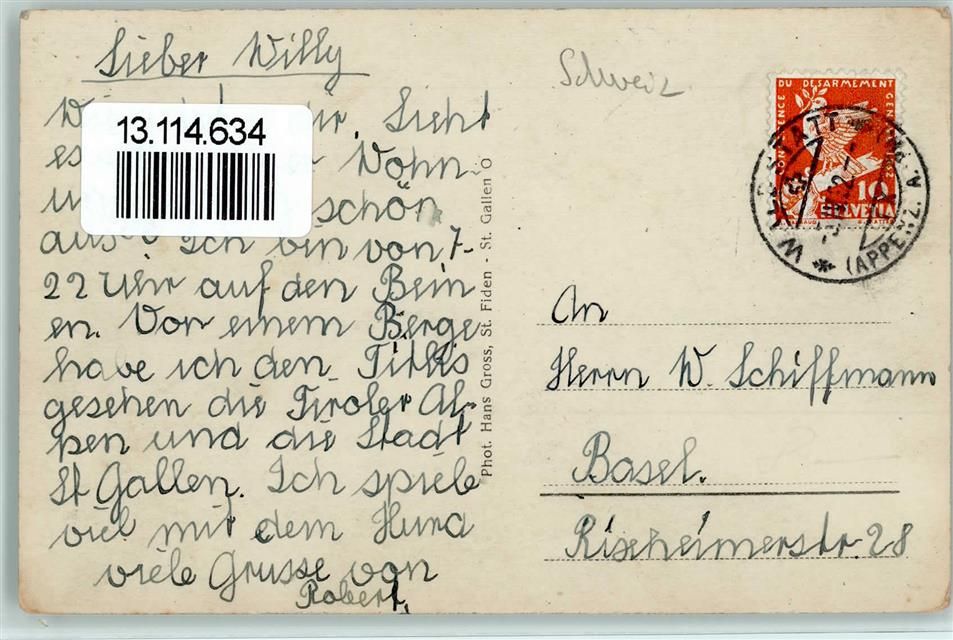 Lieber Willy
13.114.634
ir. Sieht
es Wohn-
schön
aus? Ich bin von 7-
22 Uhr auf den Bein
en. Von einem Berge
habe ich den Titlis
gesehen die Tiroler Al-
pen und die Stadt
St Gallen. Ich spiele
viel mit dem Hund
viele Grusse von
Robert.
Phot. Hans Gross, St. Fiden - St. Gallen O
Schweiz
CONFERENCE DU DESARMEMENT GENEVE 1932
10
HELVETIA
WALDSTATT
(APPENZ. A. RH.)
An
Herrn W. Schiffmann
Basel.
Rixheimerstr. 28